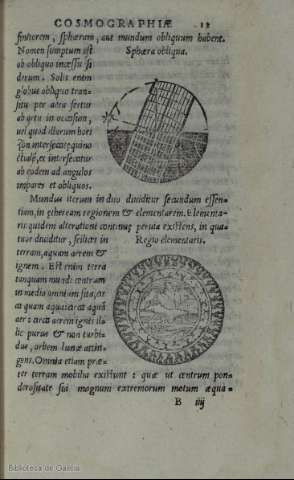 COSMOGRAPHIÆ 12
finitorem, sphæram, aut mundum obliquum habent.
Nomen sumptum est
Sphæra obliqua.
ab obliquo incessu si
derum. Solis enim
globus obliquo tran-
situ per aëra fertur
ab ortu in occasum,
vel quod illorum hori
zon intersecet equino
ctialē, et intersecetur
ab eodem ad angulos
impares et obliquos.
Mundus iterum in duo dividitur secundum essen-
tiam, in etheream regionem & elementarem. Elementa-
ris quidem alterationi continuè pervia existens, in qua-
tuor dividitur, scilicet in
Regio elementaris.
terram, aquam aerem &
ignem. Est enim terra
tanquam mundi centrum
in medio omnium sita, cir
ca quam aqua: circa aquā
aer: circa aerem ignis il-
lic purus & non turbi-
dus, orbem lunæ attin-
gens. Omnia etiam præ-
ter terram mobilia existunt: quæ ut centrum pon-
derositate sui magnum extremorum motum æquà-
B iiij
Biblioteca de Galicia